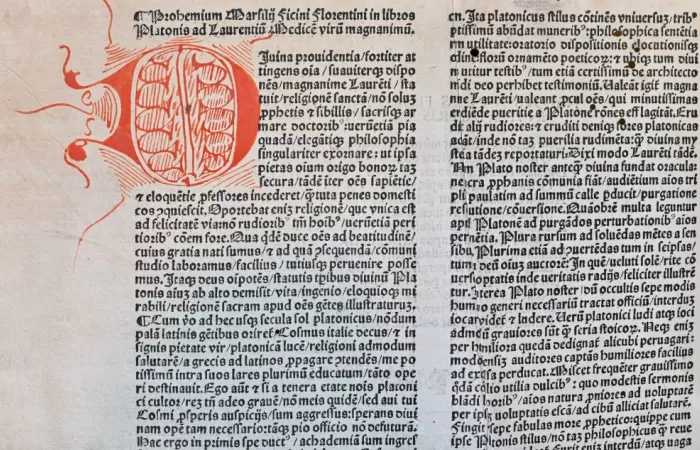 ¶Prohemium Marsilij Ficini Florentini in libros
Platonis ad Laurentiū Medicē virū magnanimū.
Iuina prouidentia/fortiter at
tingens oīa/suauiterqꝫ dispo
nēs/magnanime Laurēti/sta
tuit/religionē sanctā/nō soluꝫ
ꝓphetis ⁊ sibillis/sacrisqꝫ ar
mare doctoribꝰ:veruꝫetiā pia
quadā/elegātiqꝫ philosophia
singulariter exornare: ut ipsa
pietas oium origo bonoꝝ taꝫ
secura/tādē iter oēs sapiētie/
⁊ eloquētie ꝓfessores incederet/qͥtuta penes domesti
cos ꝯquiescit. Oportebat eniꝫ religionē/que vnica est
ad felicitatē via:nō rudioribꝰ tm̄ hoībꝰ/veruꝫetiā peri
tioribꝰ cōem fore. Qua qͥdē duce oēs ad beatitudinē/
cuius gratia nati sumus/⁊ ad quā ꝯsequendā/cōmuni
studio laboramus/facilius/tutiusqꝫ peruenire posse
mus. Itaqꝫ deus oīpotēs/statutis tꝑibus diuinū Pla
tonis aīuꝫ ab alto demisit/vita/ingenio/eloquioqꝫ mi
rabili/religionē sacram apud oēs gētes illustraturuꝫ.
¶Cum v̄o ad hec usqꝫ secula sol platonicus/nōdum
palā latinis gētibus oriret̄. Cosmus italie decus/⁊ in
signis pietate vir/platonicā lucē/religioni admodum
salutarē/a grecis ad latinos ꝓpagare ꝯtendēs/me po
tissimū intra suos lares plurimū educatum/tāto ope
ri destinauit. Ego aūt ⁊ si a tenera etate noīs platoni
ci cultor/rem tn̄ adeo grauē/nō meis quidē/sed aui tui
Cosmi ꝓsperis auspicijs/sum aggressus:sperans diui
nam opē tam necessario:tāqꝫ pio officio nō defuturā.
Hac ergo in primis spe ductꝰ/achademiā sum ingres
cn. Ita platonicus stilus cōtinēs vniuersuꝫ/tribꝰ
ptissimū abūdat muneribꝰ:philosophica sentētia
utilitate:oratorio dispositionis elocutionisqꝫ
florū ornamēto poeticoꝝ:⁊ ubiqꝫ tum diui
utitur testibꝰ/tum etiā certissimū de architecto
mūdi deo perhibet testimoniū. Ualeāt igit̄ magna
nime Laurēti/ualeant ꝓcul oēs/qui minutissimā
a Platone rōnes efflagitāt. Eru
alij rudiores:⁊ eruditi deniqꝫ fores platonicas
adāt/inde nō taꝫ puerilia rudimēta:qͣꝫ diuina my
steria tādeꝫ reportaturi. Dixi modo Laurēti tādē.
Nā Plato noster anteqͣꝫ diuina fundat oracula:
ꝓphanis cōmunia fiāt/auditium aīos tri
pli paulatim ad summū calle ꝑducit/purgatione
resolutione/cōuersione. Quāobrē multa leguntur
apd̄ Platonē ad purgādos perturbationibꝰ aīos
Plura rursum ad soluēdas mētes a sen
sibꝰ. Plurima etiā ad ꝯuertēdas tum in seipsas/
tum deū oīuꝫ auctorē: In quē/ueluti solē/rite cō
optatis inde veritatis radijs/feliciter illustrē
tur. Interea Plato noster/dū occultis sepe modis
humano generi necessariū tractat officiū/interduꝫ
iocari videt̄ ⁊ ludere. Uerū platonici ludi atqꝫ ioci
admōdū grauiores sūt qͣꝫ seria stoicoꝝ. Neqꝫ eniꝫ
per humiliora quedā dedignat̄ alicubi peruagari:
modo sensiꝫ auditores captās humiliores facilius
ad excelsa perducat. Miscet frequēter grauissimo
qͣdā cōsilio utilia dulcibꝰ: quo modestis sermonis
blādi horibꝰ/aīos natura ꝓniores ad voluptatē
per ipsꝫ voluptatis escā/ad cibū alliciat salutarē.
Fingit sepe fabulas more ꝓphetico:quippe cum
ipse Platonis stilus/nō taꝫ philosophicus qͣꝫ reue